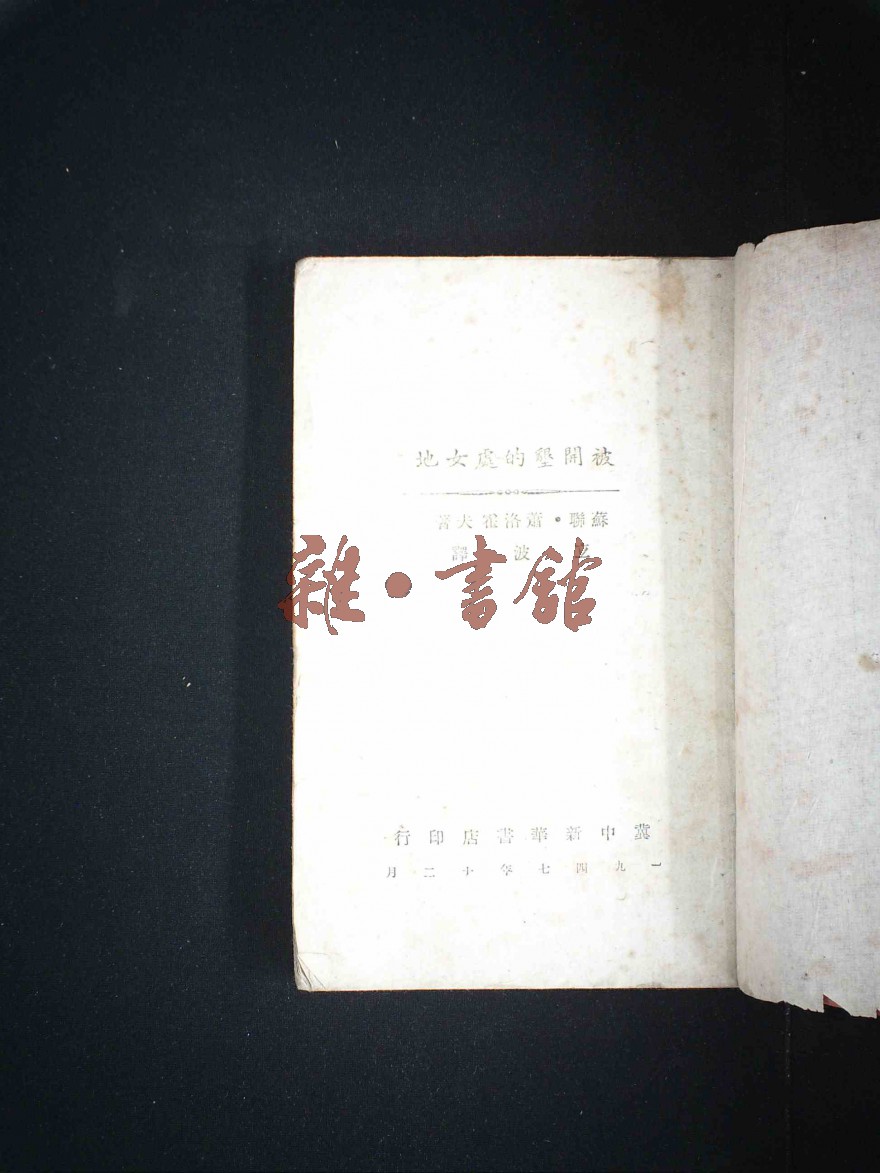 被開墾的處女地
蘇聯·蕭洛霍夫著
波 譯
雜·書館
冀中新華書店印行
一九四七年十二月